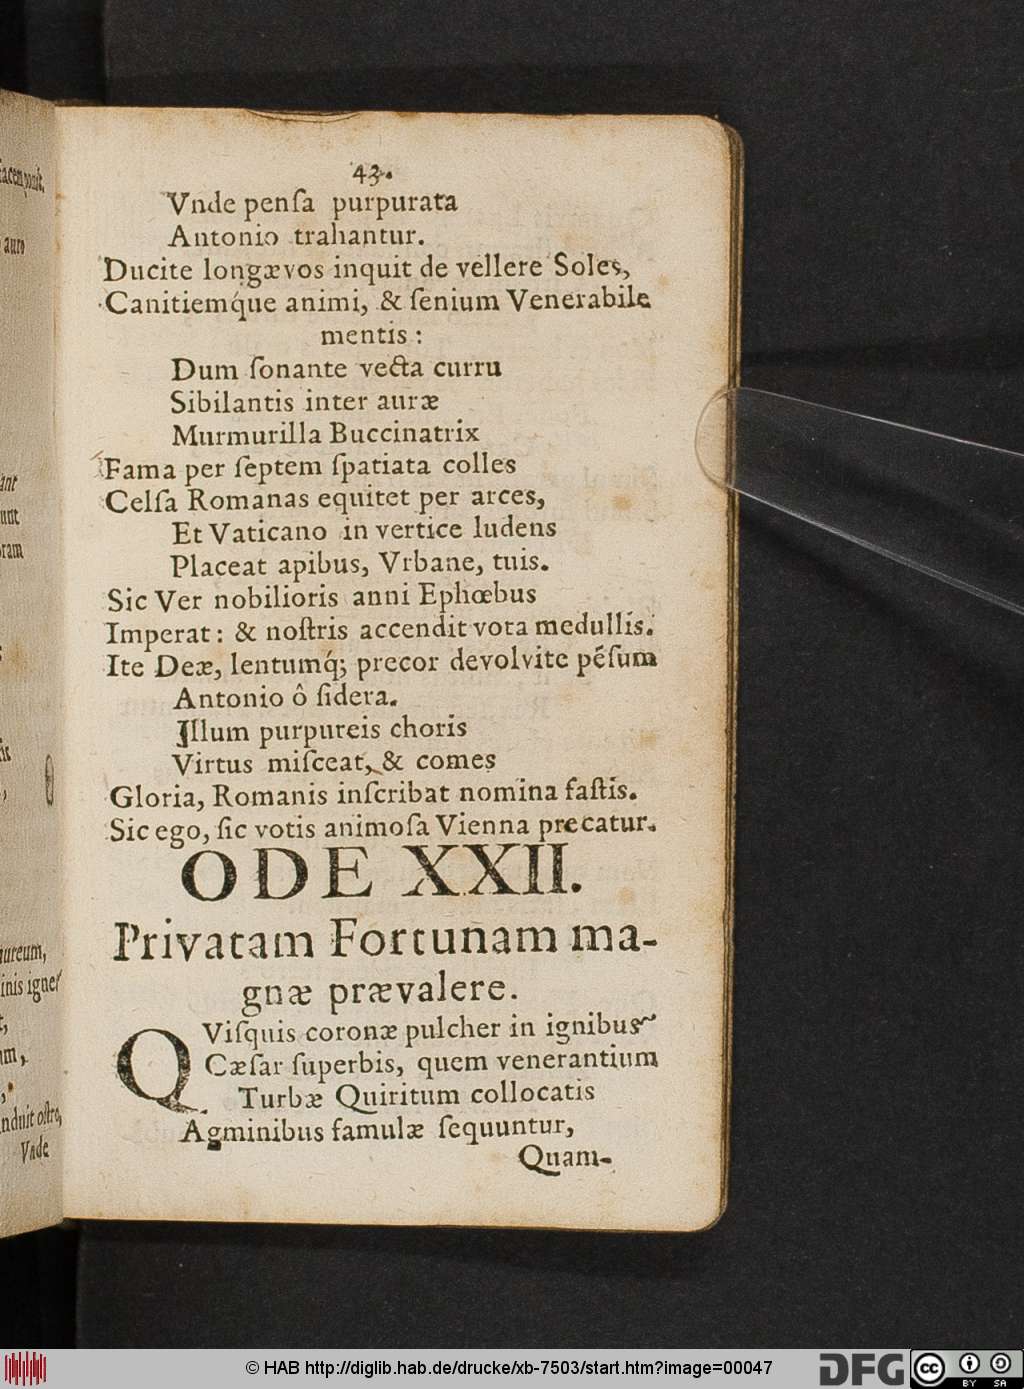 43.
Vnde penſa purpurata
Antonio trahantur.
Ducite longævos inquit de vellere Soles,
Canitiemq́ue animi, & ſenium Venerabile
mentis:
Dum ſonante vecta curru
Sibilantis inter auræ
Murmurilla Buccinatrix
Fama per ſeptem ſpatiata colles
Celſa Romanas equitet per arces,
Et Vaticano in vertice ludens
Placeat apibus, Vrbane, tuis.
Sic Ver nobilioris anni Ephœbus
Imperat: & noſtris accendit vota medullis.
Ite Deæ, lentumq́; precor devolvite pẽſum
Antonio ô ſidera.
Illum purpureis choris
Virtus miſceat, & comes
Gloria, Romanis inſcribat nomina faſtis.
Sic ego, ſic votis animoſa Vienna precatur.
ODE XXII.
Privatam Fortunam ma-
gnæ prævalere.
QViſquis coronæ pulcher in ignibus
Cæſar ſuperbis, quem venerantium
Turbæ Quiritum collocatis
Agminibus famulæ ſequuntur,
Quam-
auro
aureum,
Vnde
© HAB http://diglib.hab.de/drucke/xb-7503/start.htm?image=00047
DFG
cc
BY SA